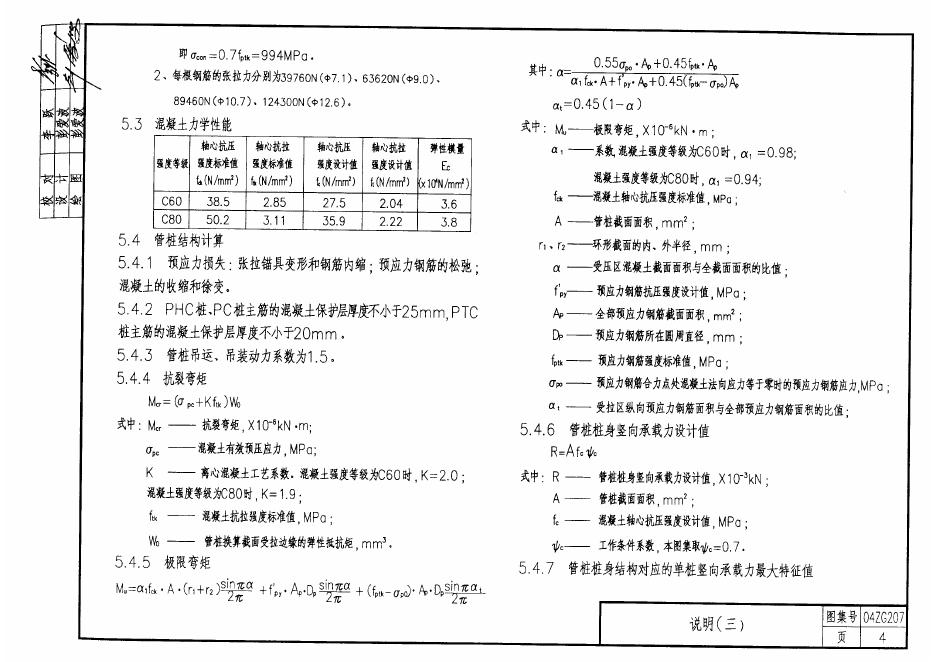 即 σcon=0.7fptk=994MPa。
2、每根钢筋的张拉力分别为39760N(Φ7.1)、63620N(Φ9.0)、
89460N(Φ10.7)、124300N(Φ12.6)。
5.3 混凝土力学性能
强度等级 轴心抗压强度标准值 fck(N/mm²) 轴心抗拉强度标准值 ftk(N/mm²) 轴心抗压强度设计值 fc(N/mm²) 轴心抗拉强度设计值 ft(N/mm²) 弹性模量 Ec (x10⁴N/mm²)
C60 38.5 2.85 27.5 2.04 3.6
C80 50.2 3.11 35.9 2.22 3.8
5.4 管桩结构计算
5.4.1 预应力损失:张拉锚具变形和钢筋内缩;预应力钢筋的松弛;
混凝土的收缩和徐变。
5.4.2 PHC桩、PC桩主筋的混凝土保护层厚度不小于25mm,PTC
桩主筋的混凝土保护层厚度不小于20mm。
5.4.3 管桩吊运、吊装动力系数为1.5。
5.4.4 抗裂弯矩
Mcr=(σpc+Kftk)W₀
式中:Mcr —— 抗裂弯矩,X10⁻⁶kN·m;
σpc —— 混凝土有效预压应力,MPa;
K —— 离心混凝土工艺系数。混凝土强度等级为C60时,K=2.0;
混凝土强度等级为C80时,K=1.9;
ftk —— 混凝土抗拉强度标准值,MPa;
W₀ —— 管桩换算截面受拉边缘的弹性抵抗矩,mm³。
5.4.5 极限弯矩
Mu=α₁fck·A·(r₁+r₂)sinπα/2π+f'py·Ap·Dp sinπα/2π+(fptk-σp0)·Ap·Dp sinπαt/2π
其中:α=(0.55σpo·Ap+0.45fptk·Ap)/(α₁fck·A+f'py·Ap+0.45(fptk-σpo)Ap)
αt=0.45(1-α)
式中:Mu——极限弯矩,X10⁻⁶kN·m;
α₁——系数,混凝土强度等级为C60时,α₁=0.98;
混凝土强度等级为C80时,α₁=0.94;
fck——混凝土轴心抗压强度标准值,MPa;
A——管桩截面面积,mm²;
r₁、r₂——环形截面的内、外半径,mm;
α——受压区混凝土截面面积与全截面面积的比值;
f'py——预应力钢筋抗压强度设计值,MPa;
Ap——全部预应力钢筋截面面积,mm²;
Dp——预应力钢筋所在圆周直径,mm;
fptk——预应力钢筋强度标准值,MPa;
σpo——预应力钢筋合力点处混凝土法向应力等于零时的预应力钢筋应力,MPa;
α₁——受拉区纵向预应力钢筋面积与全部预应力钢筋面积的比值;
5.4.6 管桩桩身竖向承载力设计值
R=Afcψc
式中:R——管桩桩身竖向承载力设计值,X10⁻³kN;
A——管桩截面面积,mm²;
fc——混凝土轴心抗压强度设计值,MPa;
ψc——工作条件系数,本图集取ψc=0.7。
5.4.7 管桩桩身结构对应的单桩竖向承载力最大特征值
说明(三)
图集号 04ZG207
页 4
校 刘 李跃
设计 彭雯波
绘图 彭雯波